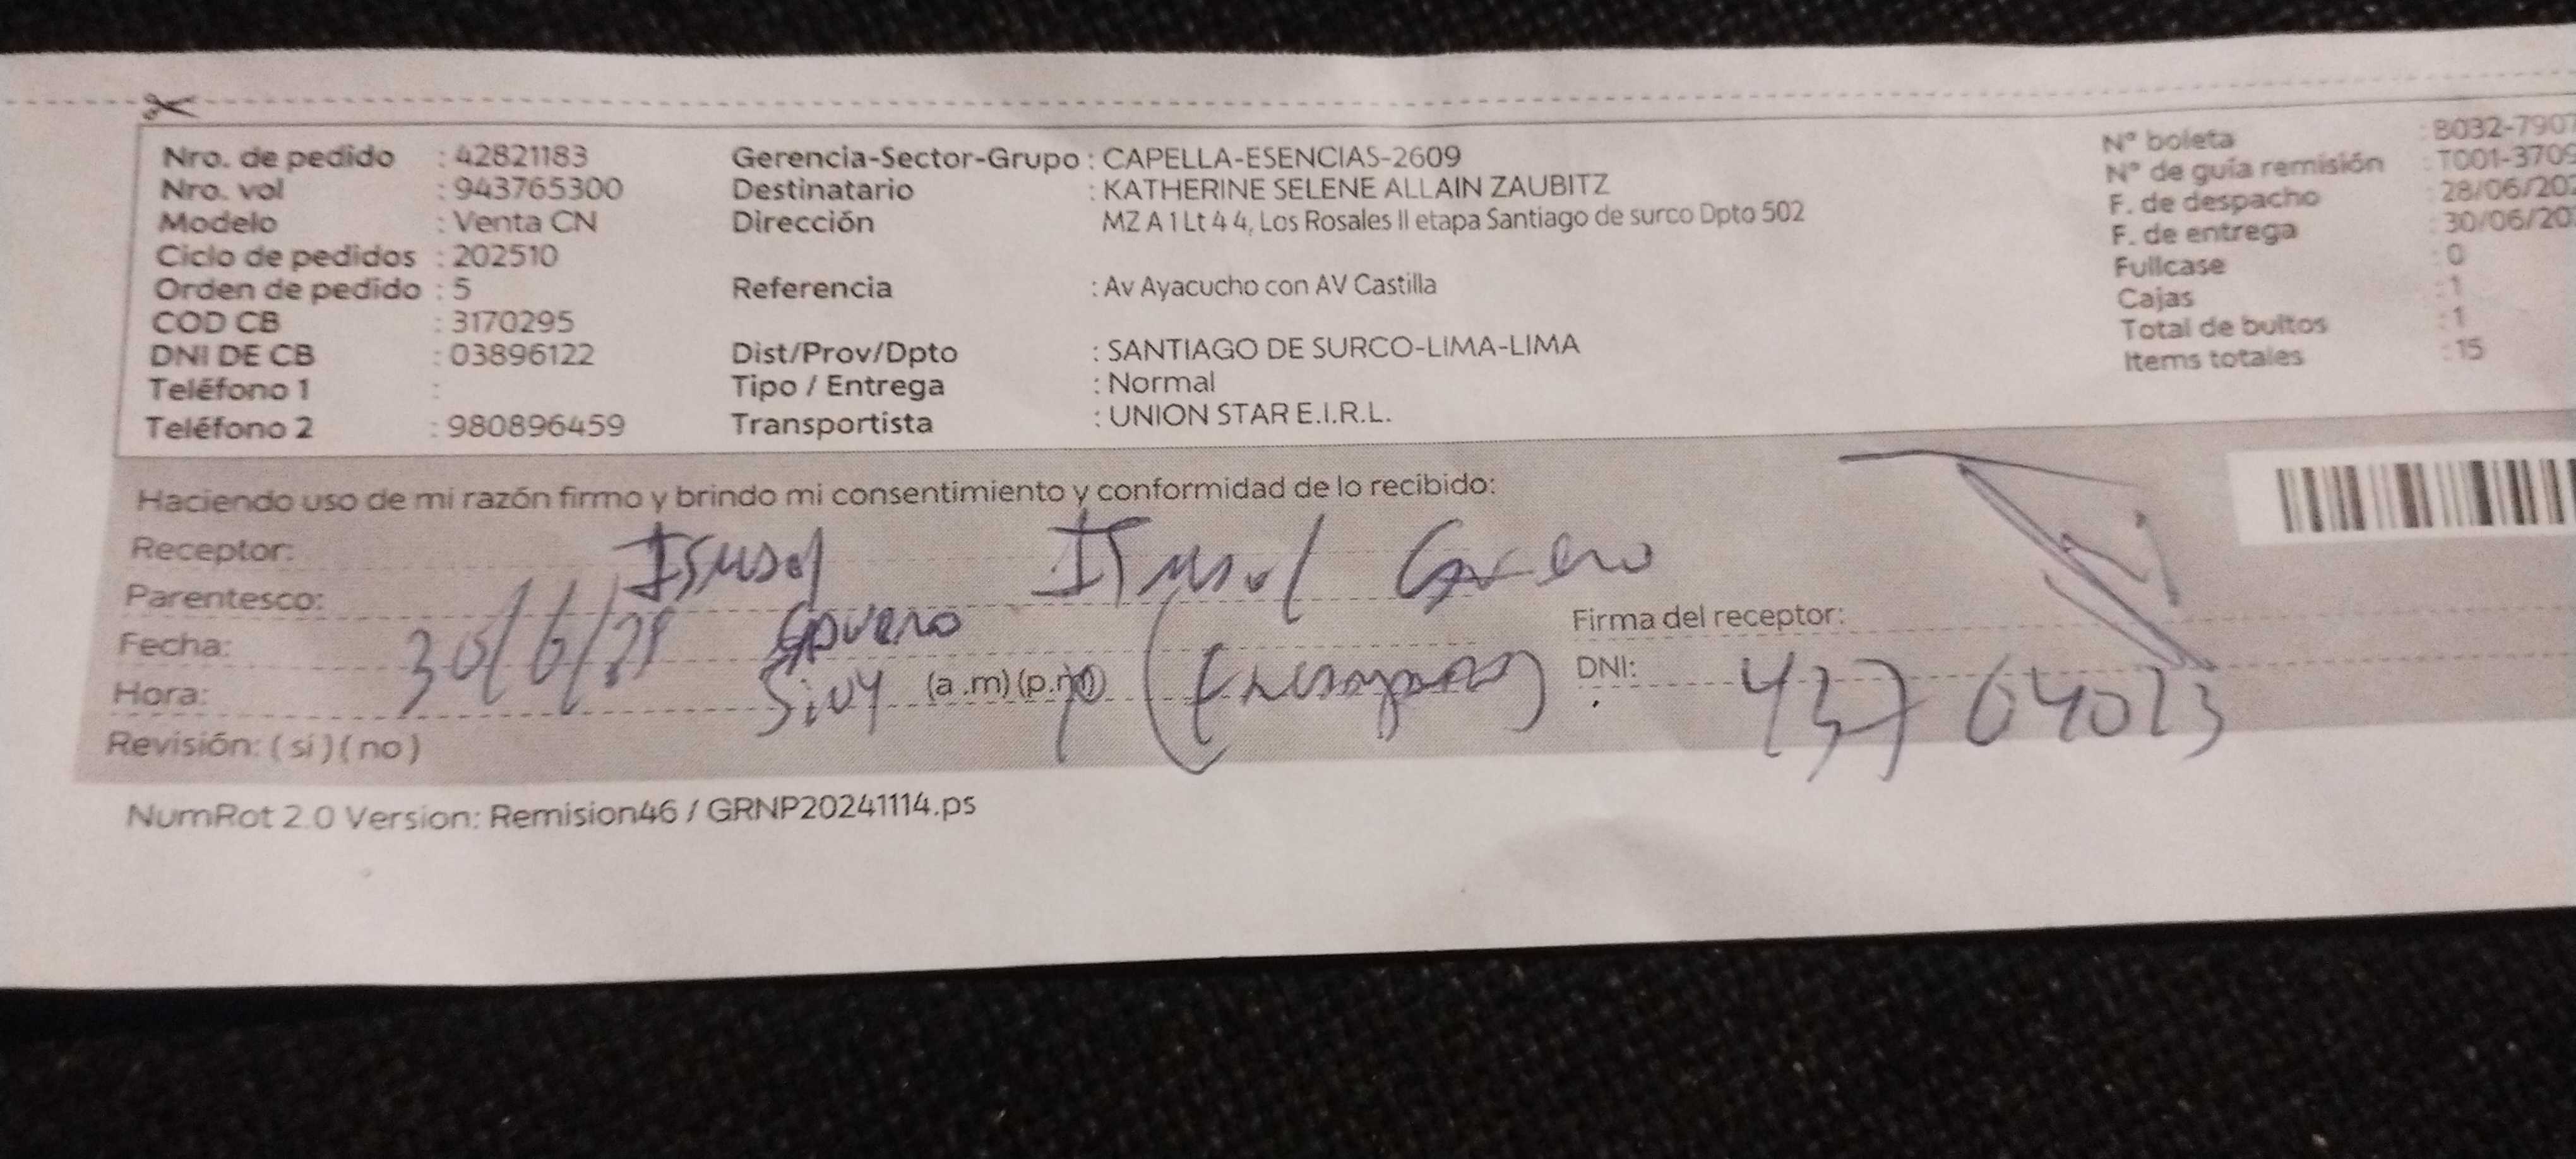 Nro. de pedido : 42821183 Gerencia-Sector-Grupo : CAPELLA-ESENCIAS-2609 N° boleta : B032-7907
Nro. vol : 943765300 Destinatario : KATHERINE SELENE ALLAIN ZAUBITZ N° de guía remisión : T001-3709
Modelo : Venta CN Dirección MZ A 1 Lt 4 4, Los Rosales II etapa Santiago de surco Dpto 502 F. de despacho : 28/06/202
Ciclo de pedidos : 202510 F. de entrega : 30/06/20
Orden de pedido : 5 Referencia : Av Ayacucho con AV Castilla Fullcase : 0
COD CB : 3170295 Cajas : 1
DNI DE CB : 03896122 Dist/Prov/Dpto : SANTIAGO DE SURCO-LIMA-LIMA Total de bultos : 1
Teléfono 1 : Tipo / Entrega : Normal Items totales : 15
Teléfono 2 : 980896459 Transportista : UNION STAR E.I.R.L.
Haciendo uso de mi razón firmo y brindo mi consentimiento y conformidad de lo recibido:
Receptor:
Parentesco:
Firma del receptor:
Fecha: 30/6/25
Hora: (a .m) (p.m) DNI: 43764023
Revisión: ( si ) ( no )
NumRot 2.0 Version: Remision46 / GRNP20241114.ps